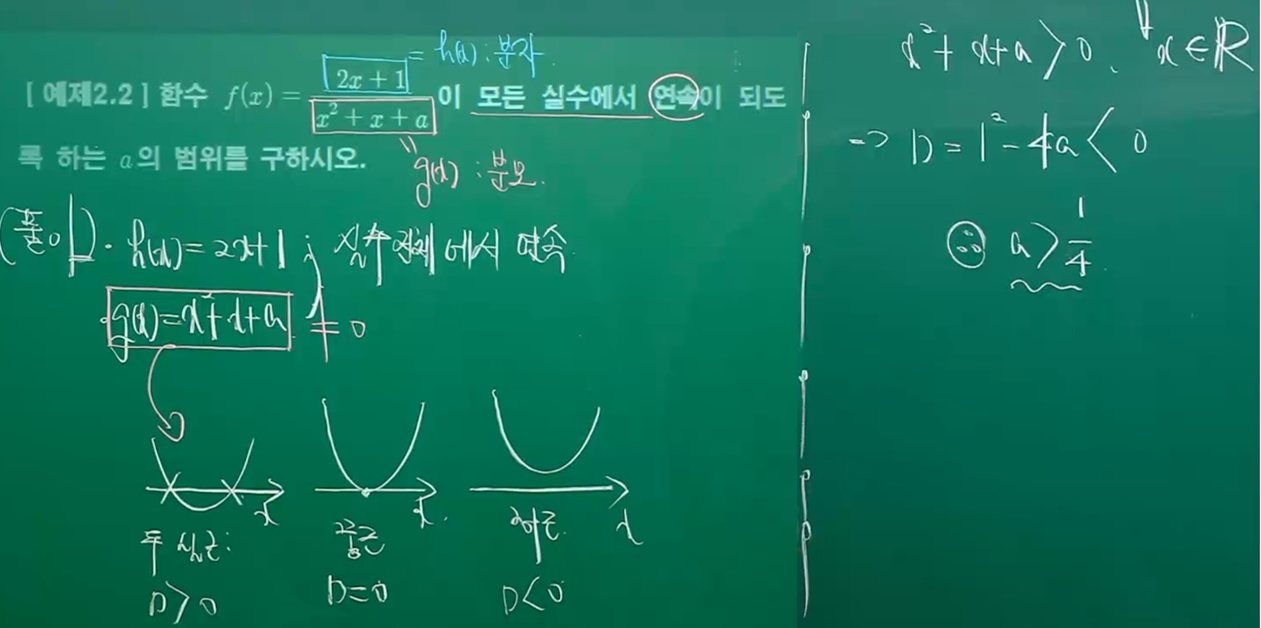 = h(x) : 분자.
[예제2.2] 함수 f(x) = \frac{2x+1}{x^2+x+a} 이 모든 실수에서 연속이 되도
록 하는 a의 범위를 구하시오.
" g(x) : 분모.
(풀이). · h(x) = 2x+1 ; 실수 전체에서 연속.
· g(x) = x^2+x+a ≠ 0
x
x.
x
두 실근:
중근
허근
D>0
D=0
D<0
x^2+x+a>0. ∀x∈ℝ
=> D = 1^2-4a < 0
∴ a > \frac{1}{4}